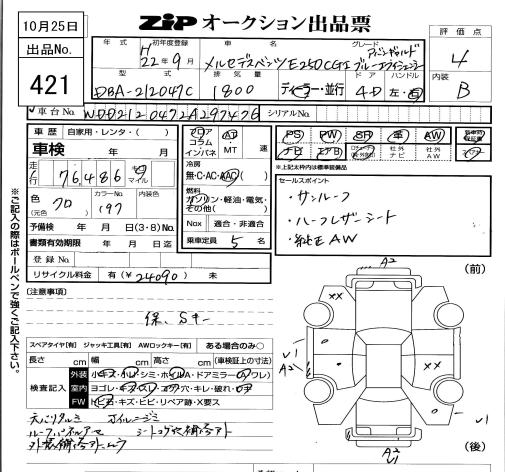 10月25日
ZiP オークション出品票
出品No.
421
年式 初年度登録 車名 グレード
H 22年9月 メルセデスベンツE250CGI アバンギャルド
ブルーエフィシェンシー
型式 排気量 ドア ハンドル
DBA-212047C 1800 ディーラー・並行 4D 左・右
評価点
4
内装
B
車台No. WDD2120472A297476 シリアルNo.
車歴 自家用・レンタ・( )
車検 年 月 日
走行 76,486 マイル
色 クロ カラーNo. 197 内装色
(元色)
予備検 年 月 (3・8)No.
書類有効期限 年 月 日
登録No.
リサイクル料金 有(¥24090) 未
フロア コラム インパネ AT ・MT 速
冷房
無・C・AC・AAC
燃料
ガソリン・軽油・電気・その他( )
Nox 適合・非適合
乗車定員 5 名
PS PW SR 革 AW
ナビ エアB 社外ナビ 社外AW
*上記太わ枠内は標準装備品
セールスポイント
・サンルーフ
・ハーフレザーシート
・純正AW
※ご記入の際はボールペンで強くご記入下さい。
[注意事項]
保、Sキー
スペアタイヤ[有] ジャッキ工具[有] AWロックキー[有] ある場合のみ○
長さ cm 幅 cm 高さ cm (車検証上の寸法)
検査記入 外装 小キズ・凹・シミ・ホイルA・ドアミラー(A・ワレ)
室内 ヨゴレ・キズ・スレ・コゲ・穴・キレ・破れ・ウキ
FW トビ石・キズ・ヒビ・リペア跡・X要ス
ルーフパネルアマ シートコゲ穴補修アト
(前)
A2
XX XX
V1
A2
V1
A2
(後)